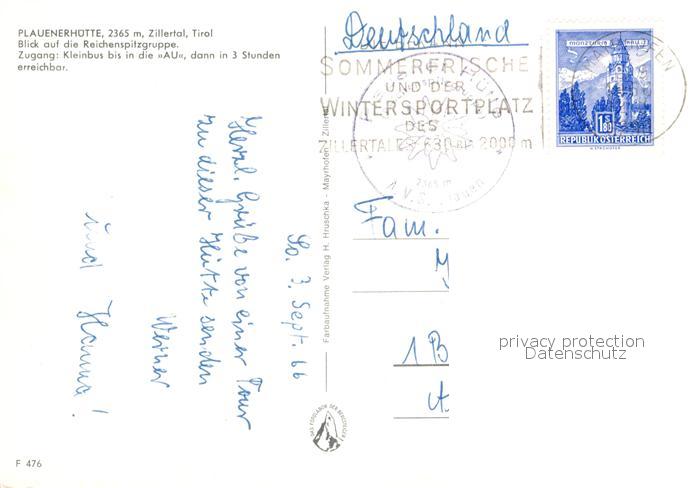 PLAUENERHÜTTE, 2365 m, Zillertal, Tirol
Blick auf die Reichenspitzgruppe.
Zugang: Kleinbus bis in die »AU«, dann in 3 Stunden
erreichbar.
So. 3. Sept. 66
Herzl. Grüße von einer Tour
zu dieser Hütte senden
Werner
und Hanna!
Farbaufnahme Verlag H. Hruschka - Mayrhofen - Zillertal
Deutschland
SOMMERFRISCHE
UND DER
WINTERSPORTPLATZ
DES
ZILLERTALES 630 bis 2000 m
2365 m
A.V.S.
1 S 80
REPUBLIK ÖSTERREICH
Fam.
M
1 B
A
privacy protection
Datenschutz
F 476